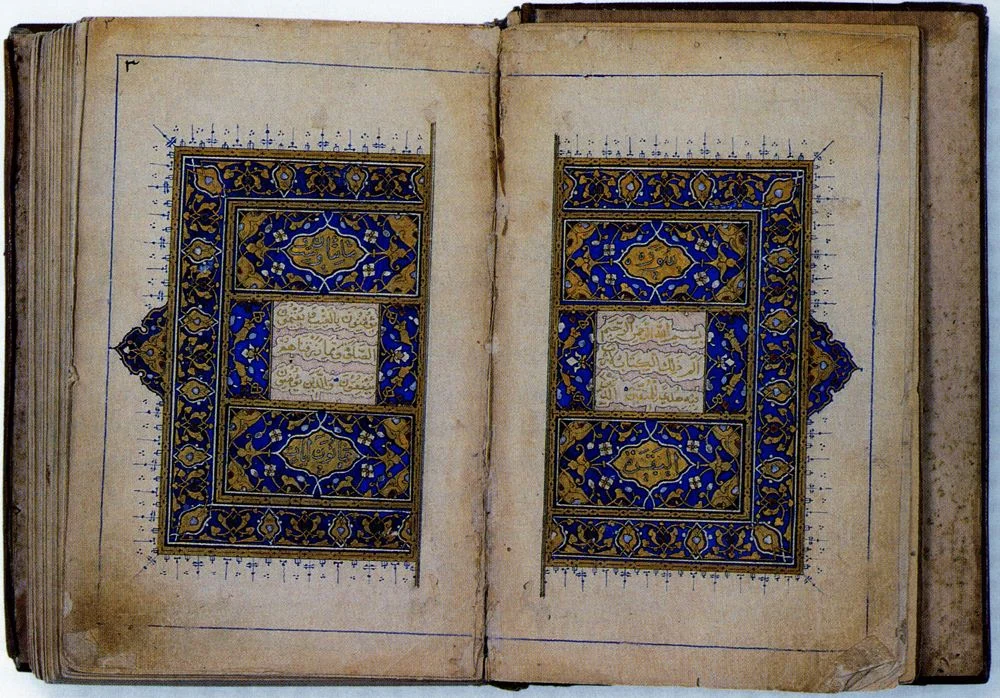 سورة
بسم الله الرحمن الرحيم
الم ذلك الكتاب لا
فيه هدى للمتقين
البقرة
يؤمنون بالغيب ويقيمون
الصلوة ومما رزقناهم
ينفقون والذين يؤمنون